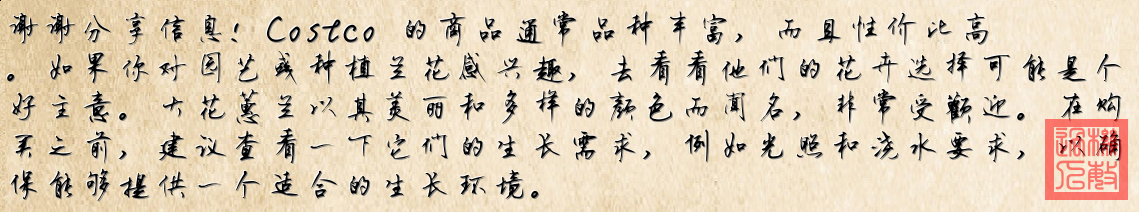 谢谢分享信息！Costco 的商品通常品种丰富，而且性价比高
。如果你对园艺或种植兰花感兴趣，去看看他们的花卉选择可能是个
好主意。大花蕙兰以其美丽和多样的颜色而闻名，非常受欢迎。在购
买之前，建议查看一下它们的生长需求，例如光照和浇水要求，以确
保能够提供一个适合的生长环境。